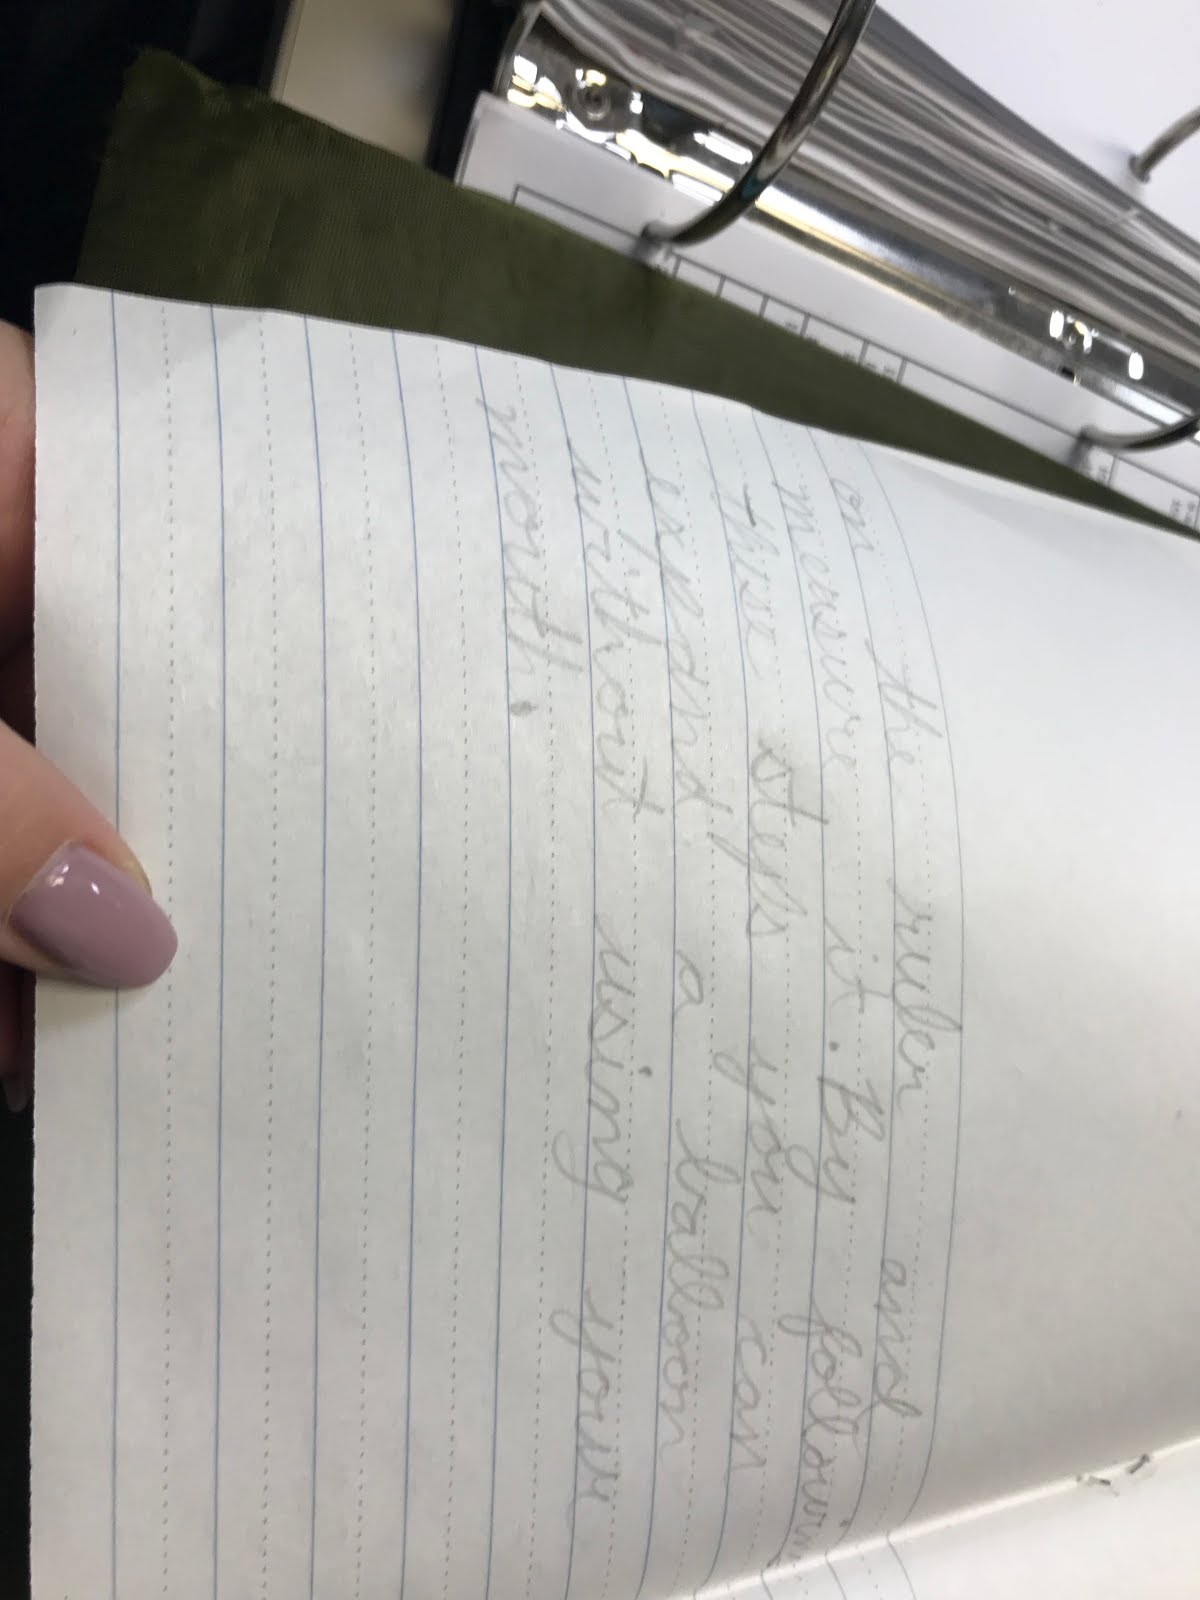 on the ruler and
measure it. By followi
these steps you can
expand a balloon
without using your
morth.